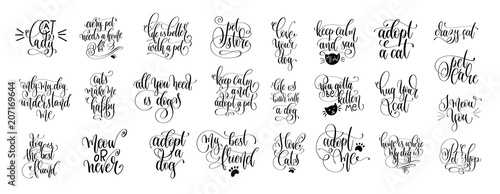 CAT
lady
every pet
needs a home
life is better
with a pet
pet
store
love
your
dog
keep calm
and say
meow
adopt
a cat
crazy cat
only my dog
understand
me
cats
make me
happy
all you need
is dog
keep calm
and
adopt a pet
life is
better with a
dog
you gotta
be
kitten
me
hug your
cat
pet
care
I meow
you
dog is
the best
friend
meow
OR
never
adopt
a
dog
my best
friend
I love
cats
adopt
me
home is where
my dog is
Pet Shop
Adobe Stock | #207169644